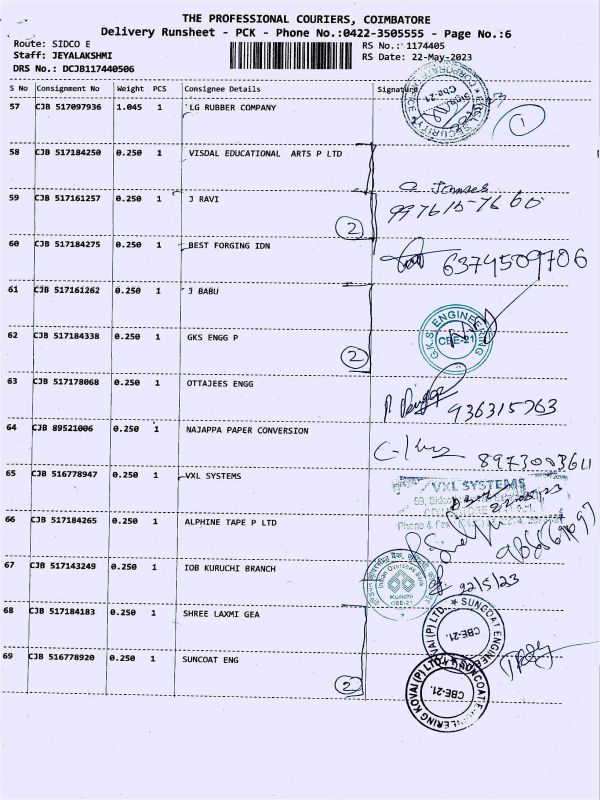 THE PROFESSIONAL COURIERS, COIMBATORE
Delivery Runsheet - PCK - Phone No.:0422-3505555 - Page No.:6
Route: SIDCO E RS No.: 1174405
Staff: JEYALAKSHMI RS Date: 22-May-2023
DRS No.: DCJB117440506
S No Consignment No Weight PCS Consignee Details Signature
57 CJB 517097936 1.045 1 LG RUBBER COMPANY
SECURITY CORPORATE OFFICE Cbe-21
1
58 CJB 517184250 0.250 1 VISDAL EDUCATIONAL ARTS P LTD
59 CJB 517161257 0.250 1 J RAVI
99761 5-7660
2
60 CJB 517184275 0.250 1 BEST FORGING IDN
6374509706
61 CJB 517161262 0.250 1 J BABU
G.K.S. ENGINEERING CBE-21
62 CJB 517184338 0.250 1 GKS ENGG P
2
63 CJB 517178068 0.250 1 OTTAJEES ENGG
936315763
64 CJB 89521006 0.250 1 NAJAPPA PAPER CONVERSION
8973083611
65 CJB 516778947 0.250 1 VXL SYSTEMS
VXL SYSTEMS
59, Sidco
Phone & Fax
66 CJB 517184265 0.250 1 ALPHINE TAPE P LTD
67 CJB 517143249 0.250 1 IOB KURUCHI BRANCH
Indian Overseas Bank Kurichi CBE-21
22/5/23
68 CJB 517184183 0.250 1 SHREE LAXMI GEA
SUNCOAT ENGINEERING KOVAI (P) LTD. CBE-21.
69 CJB 516778920 0.250 1 SUNCOAT ENG
SUNCOAT ENGINEERING KOVAI (P) LTD. CBE-21.
2